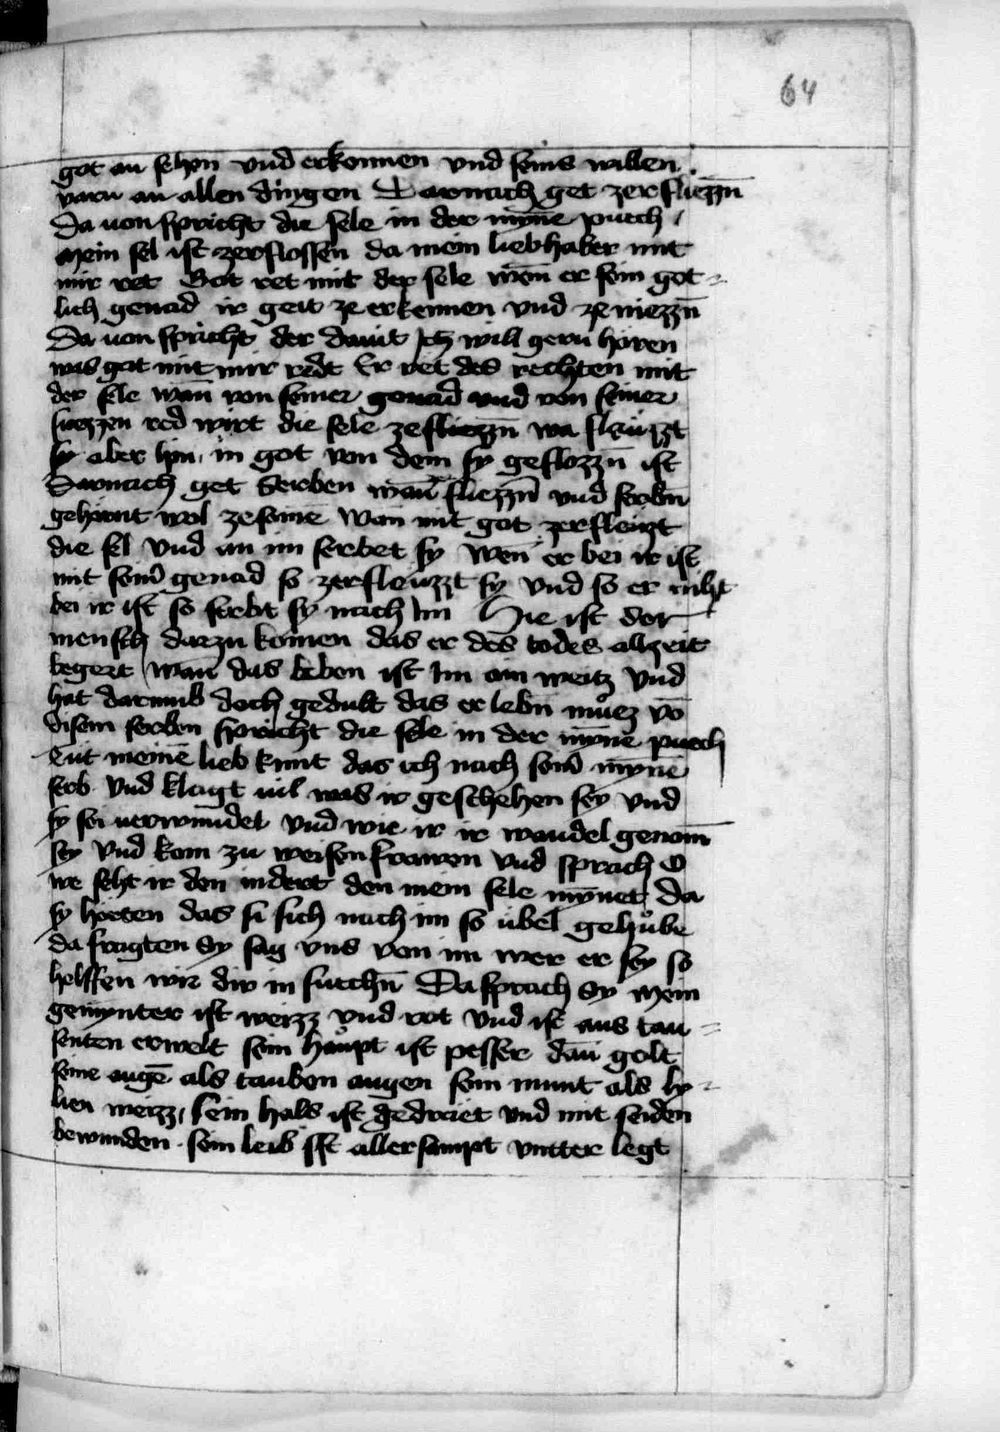 64
got an sehen vnd erkennen vnd seins willen
varn an allen dingen Darnach get zerfliezzn̄
Da uon spricht die sele in der mynne puech
Mein sel ist zerflossen da mein liebhaber mit
mir ret Got ret mit der sele wen̄ er sein got-
lich genad ir geit ze erkennen vnd ze niezzn̄
Da uon spricht der dauit Ich will gern hören
was got mit mir redt Er ret des rechten mit
der sele wan̄ von seiner genad vnd von seiner
suezzen red wirt die sele zefliezzn̄ wa fleuzzt
sy aber hin in got von dem sy geflozzn̄ ist
Darnach get Serben wan̄ fliezzn̄ vnd serbn̄
gehört wol zesamē Wan mit got zerfleuzt
die sel Vnd an im serbet sy wen̄ er bei ir ist
mit sein̄ genad so zerfleuzzt sy vnd so er niht
bei ir ist so serbt sy nach Im Hie ist der
mensch darzu komen das er des todes allzeit
begert wan̄ das leben ist Im ain weitz vnd
hat darumb doch gedult das er lebn̄ muͦz vō
disem serben spricht die sele in der mynē puech
Tüt meinē lieb kunt das ich nach sein̄ mynē
serb Vnd klagt uil was ir geschehen sey vnd
sy sei uerwundet vnd wie ir ir mandel genom̄
sey vnd kom zu weisen frawen vnd sprach O
we seht ir den indert den mein sele mynnet da
sy horten das si sich nach im so übel gehuͦbe
da fragten sy sag vns von im wer er sey so
helffen wir dir in suechn̄ Da sprach sy Mein
gemynter ist weizz vnd rot vnd ist aus tau-
senten erwelt sein haupt ist pesser dan̄ golt
seine augē als tauben augen sein munt als ly-
lien weizz sein hals ist gedraet vnd mit seiden
bewunden sein leib ist allersampt vntter legt